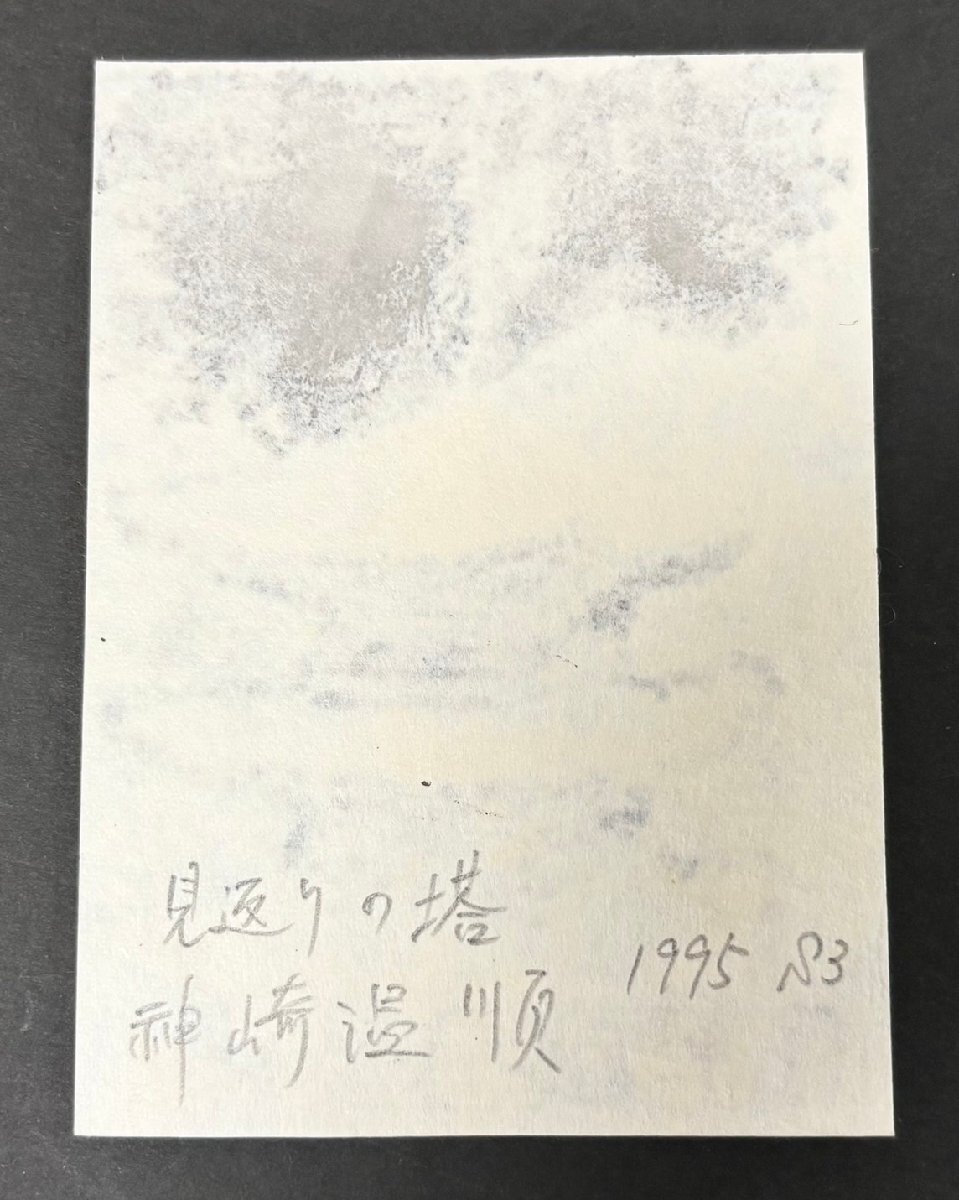 見返りの塔
神崎温順 1995 S3